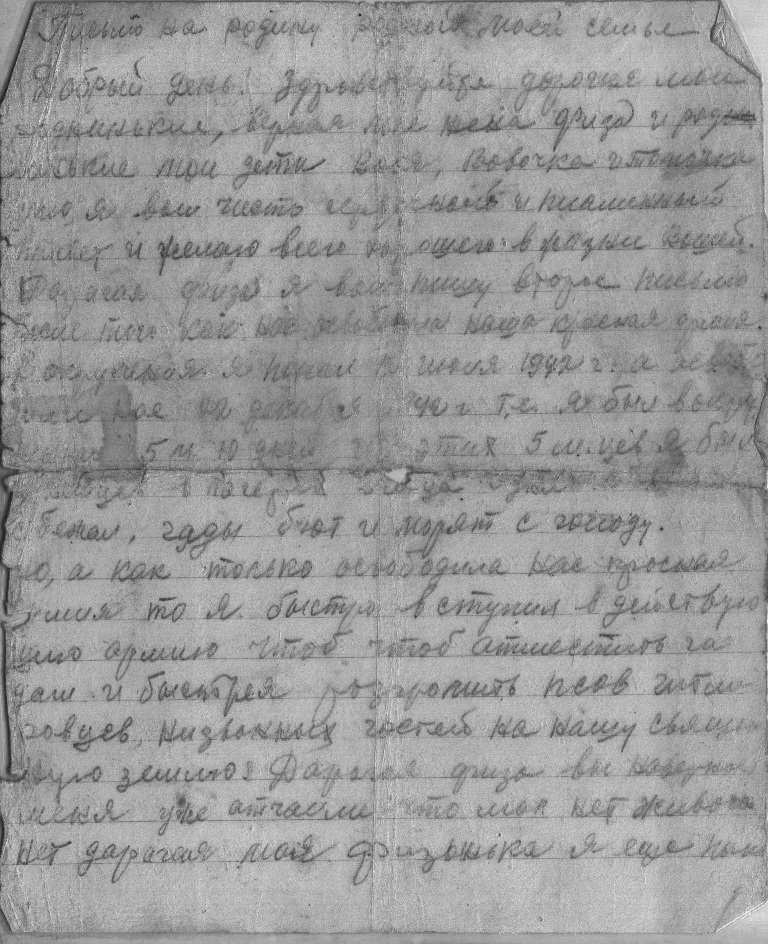 Письмо на родину родной моей семье
Добрый день! Здравствуйте дорогие мои
родниньские, верная мне жена Физа и родн
иньские мои дети Вася, Вовочка и Томочка
я вам чисто сердечный и пламенный
привет и желаю всего хорошего в жизни вашей.
Дарагая Физа я вам пишу второе письмо
после того как нас освободила наша красная армия.
В окружения я попал июля 1942 г. а освобо
нас декабря 42 г т.е. я был в окру
5 м. 10 дней этих 5 м.цев я был
м-цев в лагерях
бежал, гады бют и морят с голоду.
но, а как только освободила нас красная
армия то я быстро вступил в действую
щую армию чтоб чтоб атместить га
дам и быстрея розгромить псов гитле
ровцев, низвонных гостей на нашу священ
ную землю. Дарагая Физа вы наверно
меня уже атчаели что мол нет живого
нет дарагая моя Физонька я еще пока